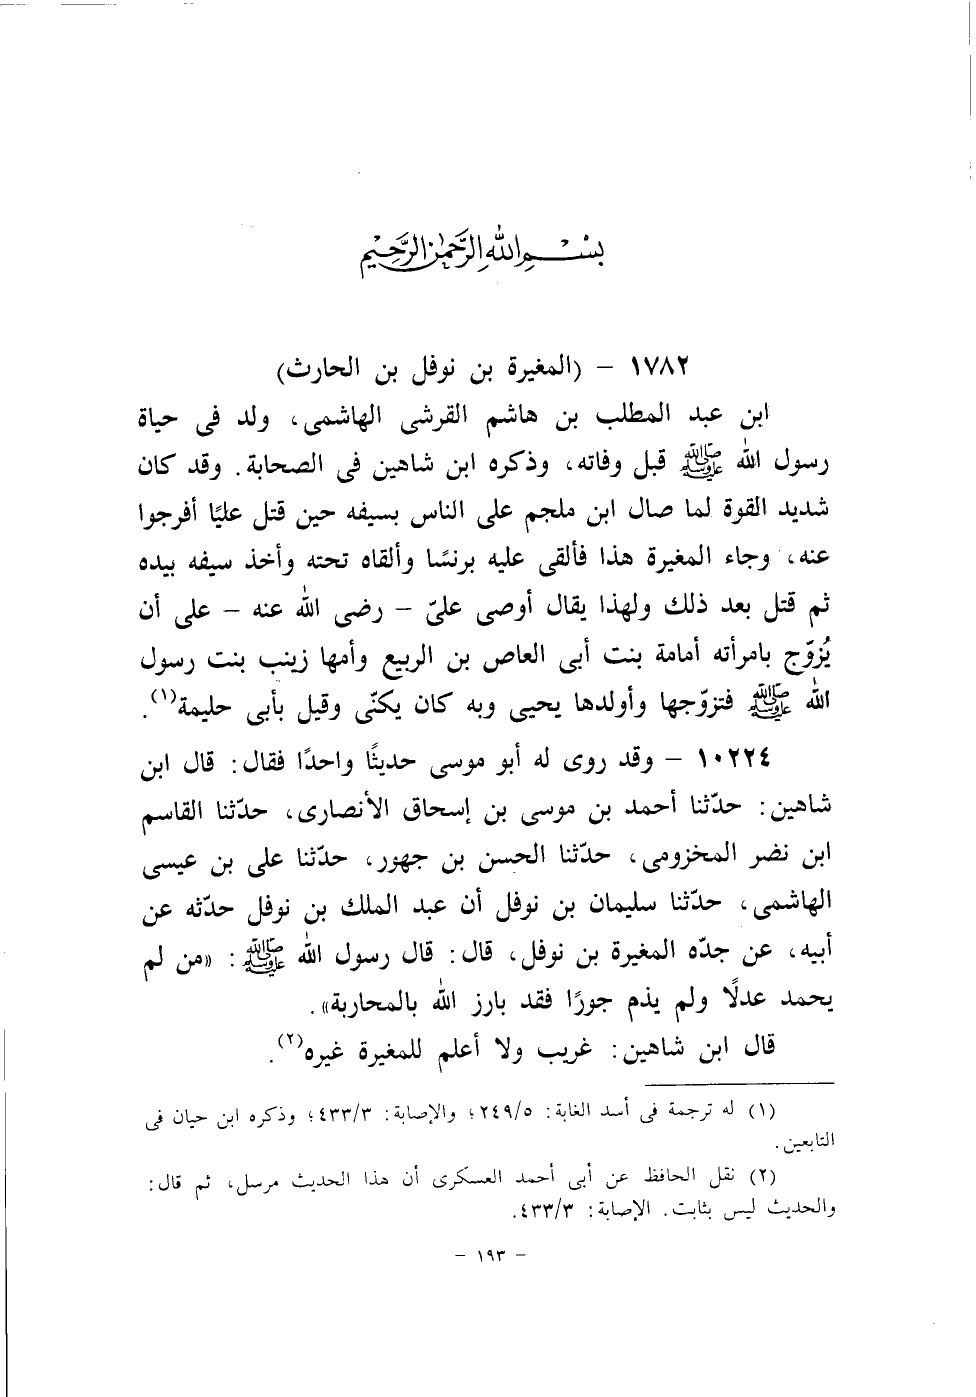 بسم الله الرحمن الرحيم
١٧٨٢ – (المغيرة بن نوفل بن الحارث)
ابن عبد المطلب بن هاشم القرشى الهاشمى، ولد فى حياة
رسول الله ﷺ قبل وفاته، وذكره ابن شاهين فى الصحابة. وقد كان
شديد القوة لما صال ابن ملجم على الناس بسيفه حين قتل عليًا أفرجوا
عنه، وجاء المغيرة هذا فألقى عليه برنسًا وألقاه تحته وأخذ سيفه بيده
ثم قتل بعد ذلك ولهذا يقال أوصى علىّ – رضى الله عنه – على أن
يُزوّج بامرأته أمامة بنت أبى العاص بن الربيع وأمها زينب بنت رسول
الله ﷺ فتزوّجها وأولدها يحيى وبه كان يكنّى وقيل بأبى حليمة(١).
١٠٢٢٤ – وقد روى له أبو موسى حديثًا واحدًا فقال: قال ابن
شاهين: حدّثنا أحمد بن موسى بن إسحاق الأنصارى، حدّثنا القاسم
ابن نضر المخزومى، حدّثنا الحسن بن جهور، حدّثنا على بن عيسى
الهاشمى، حدّثنا سليمان بن نوفل أن عبد الملك بن نوفل حدّثه عن
أبيه، عن جدّه المغيرة بن نوفل، قال: قال رسول الله ﷺ: «من لم
يحمد عدلًا ولم يذم جورًا فقد بارز الله بالمحاربة».
قال ابن شاهين: غريب ولا أعلم للمغيرة غيره(٢).
(١) له ترجمة فى أسد الغابة: ٢٤٩/٥؛ والإصابة: ٤٣٣/٣؛ وذكره ابن حيان فى
التابعين.
(٢) نقل الحافظ عن أبى أحمد العسكرى أن هذا الحديث مرسل، ثم قال:
والحديث ليس بثابت. الإصابة: ٤٣٣/٣.
– ١٩٣ –